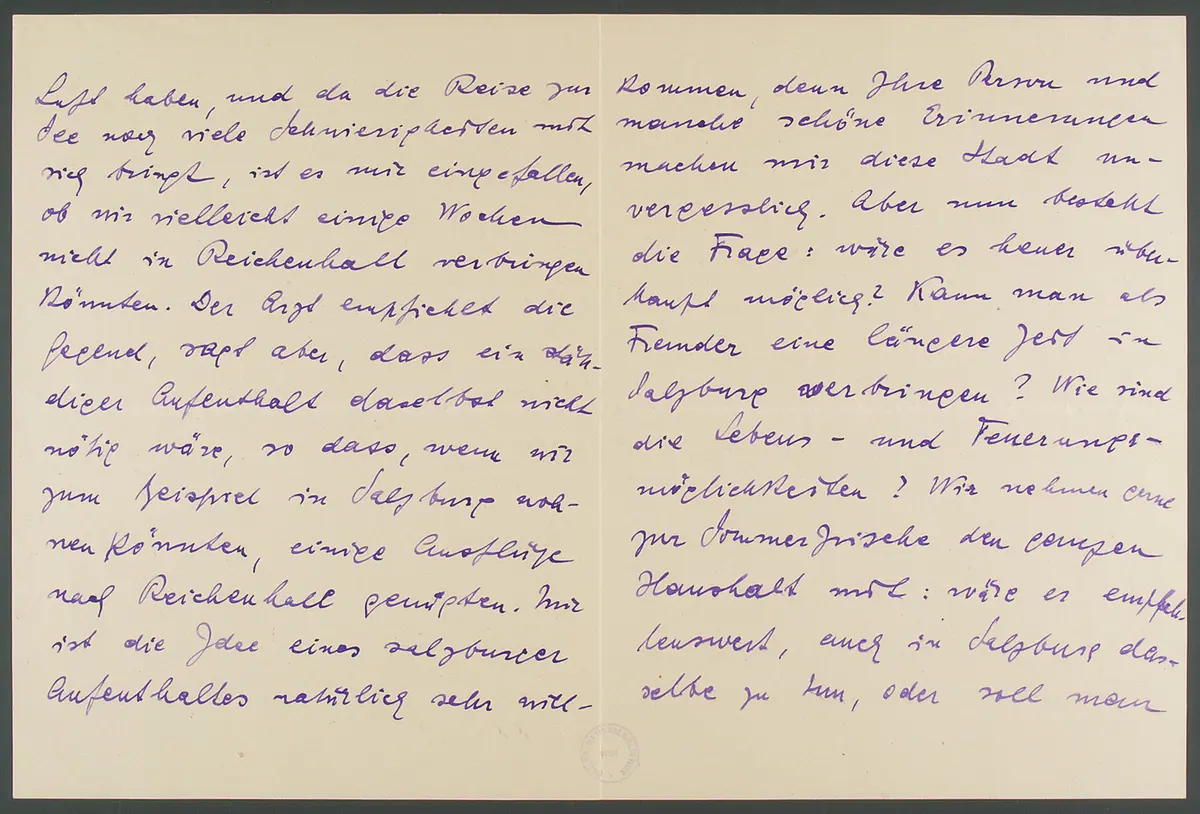 Luft haben, und da die Reise zur
See noch viele Schwierigkeiten mit
sich bringt, ist es mir eingefallen,
ob wir vielleicht einige Wochen
nicht in Reichenhall verbringen
könnten. Der Arzt empfiehlt die
Gegend, sagt aber, dass ein stän-
diger Aufenthalt daselbst nicht
nötig wäre, so dass, wenn wir
zum Beispiel in Salzburg woh-
nen könnten, einige Ausflüge
nach Reichenhall genügten. Mir
ist die Idee eines salzburger
Aufenthaltes natürlich sehr will-
kommen, denn Ihre Person und
manche schöne Erinnerungen
machen mir diese Stadt un-
vergesslich. Aber nun besteht
die Frage: wäre es heuer über-
haupt möglich? Kann man als
Fremder eine längere Zeit in
Salzburg verbringen? Wie sind
die Lebens- und Feuerungs-
möglichkeiten? Wir nehmen gerne
zur Sommerfrische den ganzen
Haushalt mit: wäre es empfeh-
lenswert, auch in Salzburg das-
selbe zu tun, oder soll man